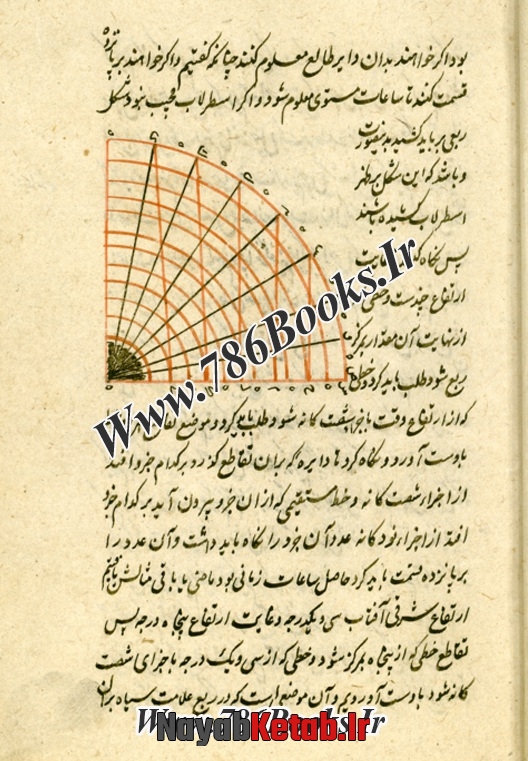 بود اگر خواهند بدان دایر طالع معلوم کنند چنانکه گفتیم و اگر خواهند بر پانزده
قسمت کنند تا ساعات مستوی معلوم شود و اگر اسطرلاب مجیب نبود شکل
ربعی بر باید کشید بدینصورت
و باشد که این شکل بر ظهر
اسطرلاب کشیده باشند
پس نگاه کنند غایت
ارتفاع چندست و خطی
از نهایت آن مقدار بمرکز
ربع شود طلب باید کرد و خطی
که از ارتفاع وقت باجزا شصت گانه شود طلب باید کرد و موضع تقاطع
بدست آورد و نگاه کرد تا دایره که بران تقاطع گذرد بر کدام جزو افتد
از اجزاء شصت گانه و خط مستقیمی که از ان جزو بیرون آید بر کدام جزو
افتد از اجزاء نود گانه عدد آن جزو را نگاه باید داشت و آن عدد را
بر پانزده قسمت باید کرد حاصل ساعات زمانی بود ماضی یا باقی مثالش یافتیم
ارتفاع شرقی آفتاب سی و یکدرجه و غایت ارتفاع پنجاه درجه پس
تقاطع خطی که از پنجاه بمرکز شود و خطی که از سی و یک درجه باجزای شصت
گانه شود بدست آوردیم و آن موضع است که در ربع علامت سیاه بران
Www.786Books.Ir
Www.786Books.Ir
NayabKetab.Ir